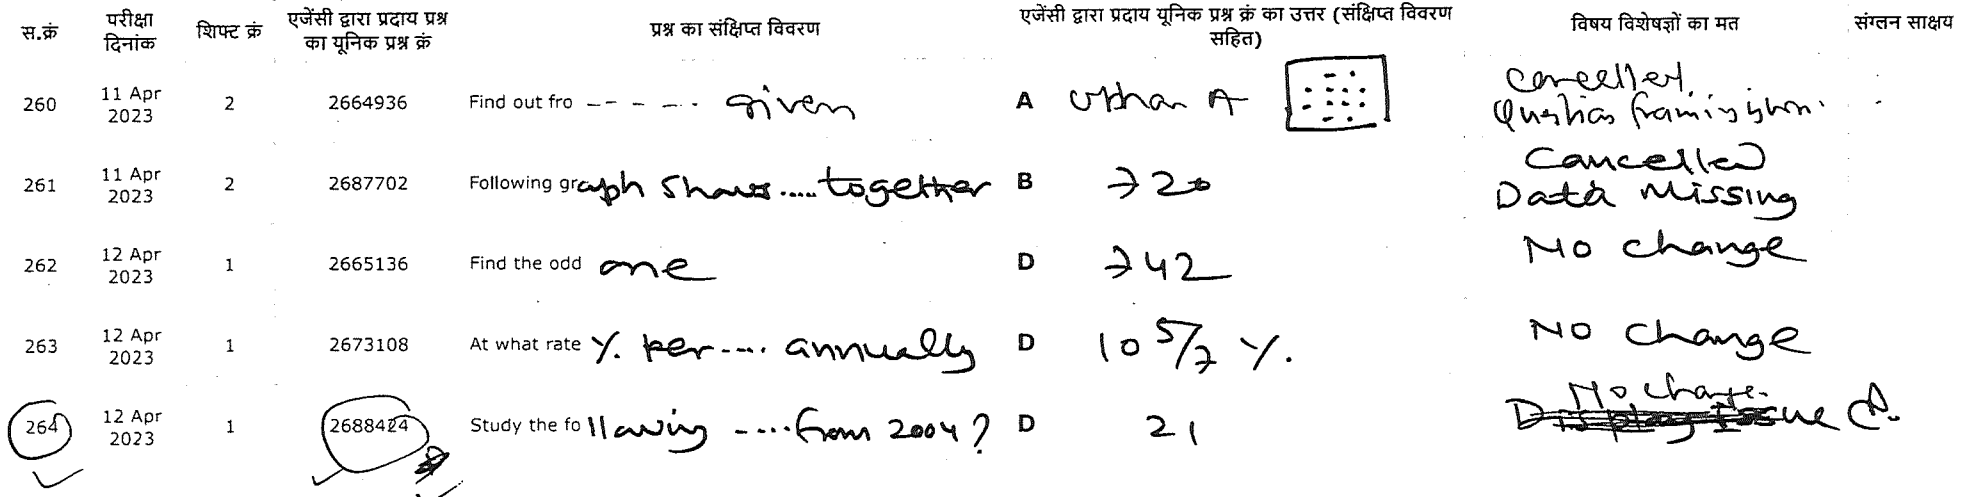 स.क्रं परीक्षा दिनांक शिफ्ट क्रं एजेंसी द्वारा प्रदाय प्रश्न का यूनिक प्रश्न क्रं प्रश्न का संक्षिप्त विवरण एजेंसी द्वारा प्रदाय यूनिक प्रश्न क्रं का उत्तर (संक्षिप्त विवरण सहित) विषय विशेषज्ञों का मत संग्लन साक्षय
260 11 Apr 2023 2 2664936 Find out fro ----- given A A Cancelled. Question framing
261 11 Apr 2023 2 2687702 Following graph shows.....together B 720 Cancelled Data Missing
262 12 Apr 2023 1 2665136 Find the odd one D 742 No change
263 12 Apr 2023 1 2673108 At what rate %. per.... annually D 10 5/7 %. No change
264 12 Apr 2023 1 2688424 Study the following ....from 2004? D 21 No change.